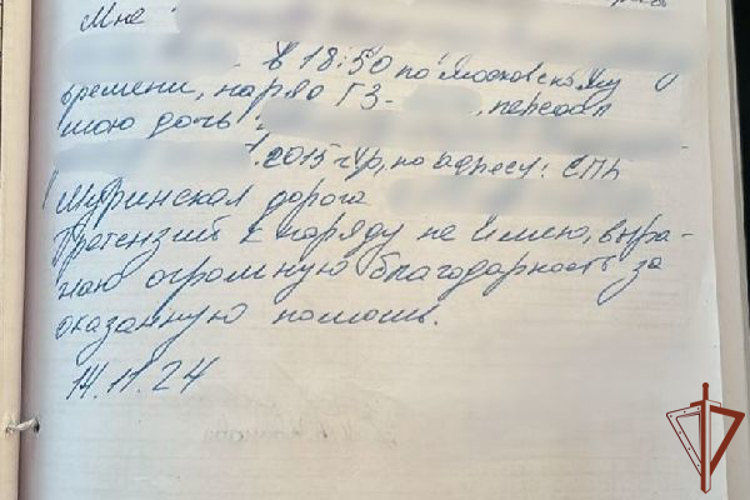 Мне
в 18:50 по московскому
времени, наряд ГЗ- , передал
мою дочь
.2015 г.р, по адресу: СПБ
Муринская дорога
Претензий к наряду не имею, выра-
жаю огромную благодарность за
оказанную помощь.
14.11.24